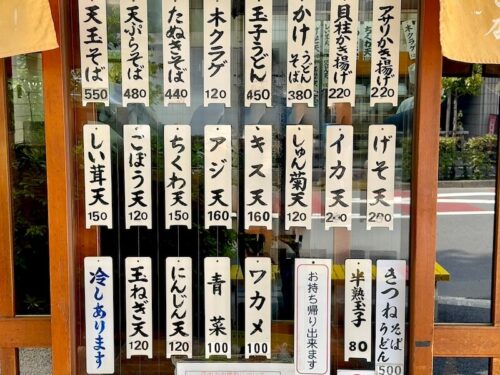 アサリかき揚げ 220
貝柱かき揚げ 220
かけうどんそば 380
玉子うどん 450
木クラゲ 120
たぬきそば 440
天ぷらそば 480
天玉そば 550
げそ天
イカ天
しゅん菊天 120
キス天 160
アジ天 160
ちくわ天 150
ごぼう天 120
しい茸天 150
きつねそばうどん 500
半熟玉子 80
お持ち帰り出来ます
ワカメ 100
青菜 100
にんじん天 120
玉ねぎ天 120
冷しあります